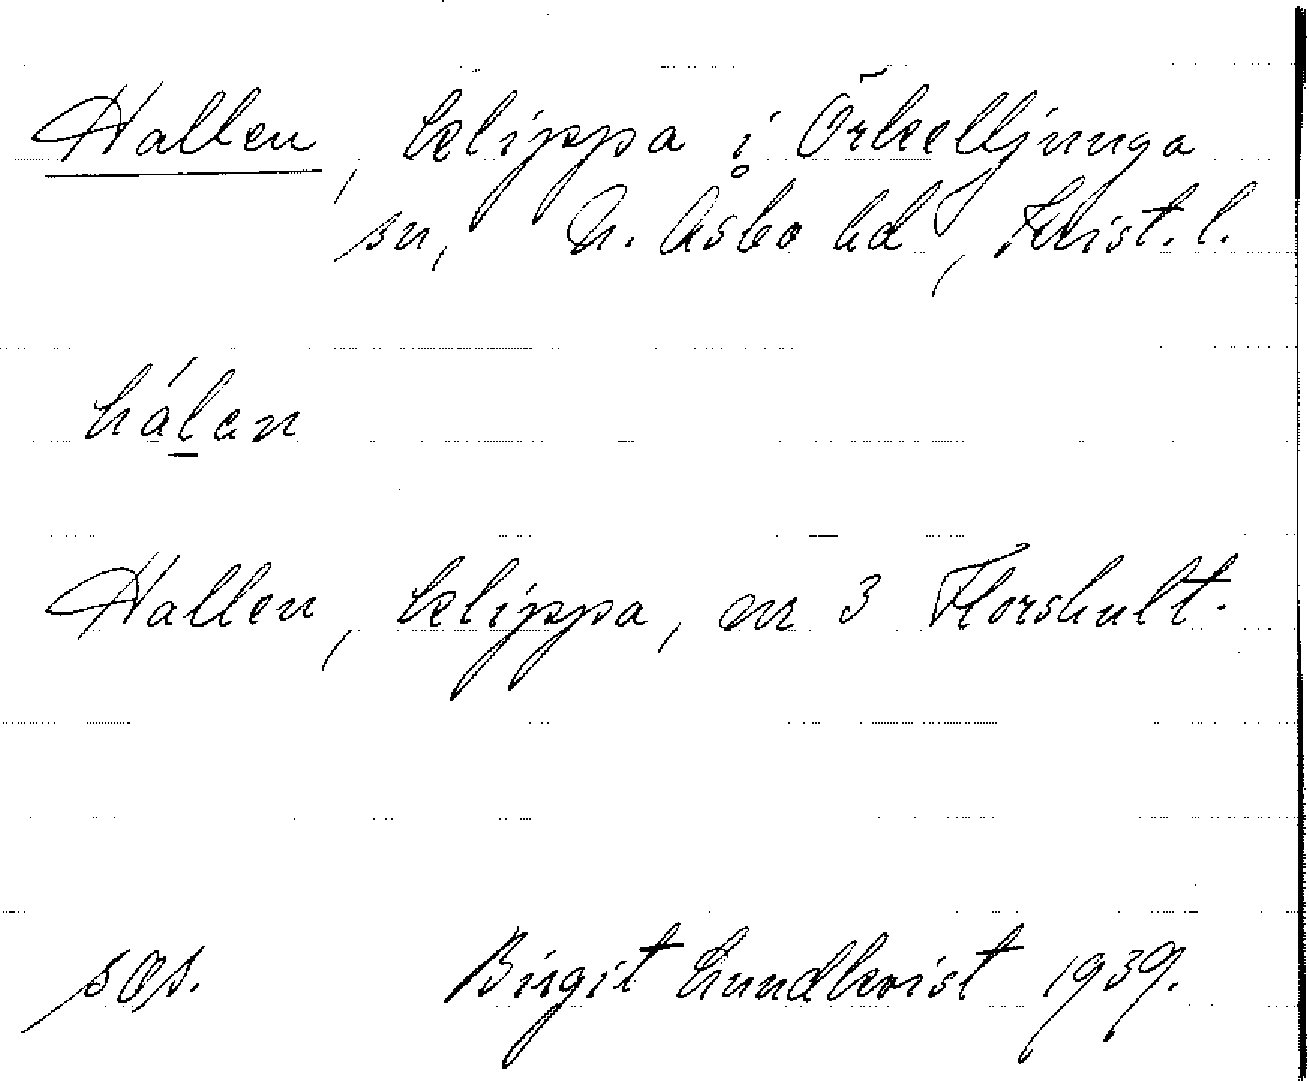 Hallen, klippa i Örkelljunga
sn, N. Åsbo hd, Krist. l.
hálan
Hallen, klippa, nr 3 Florshult.
Birgit Lundkvist 1939.